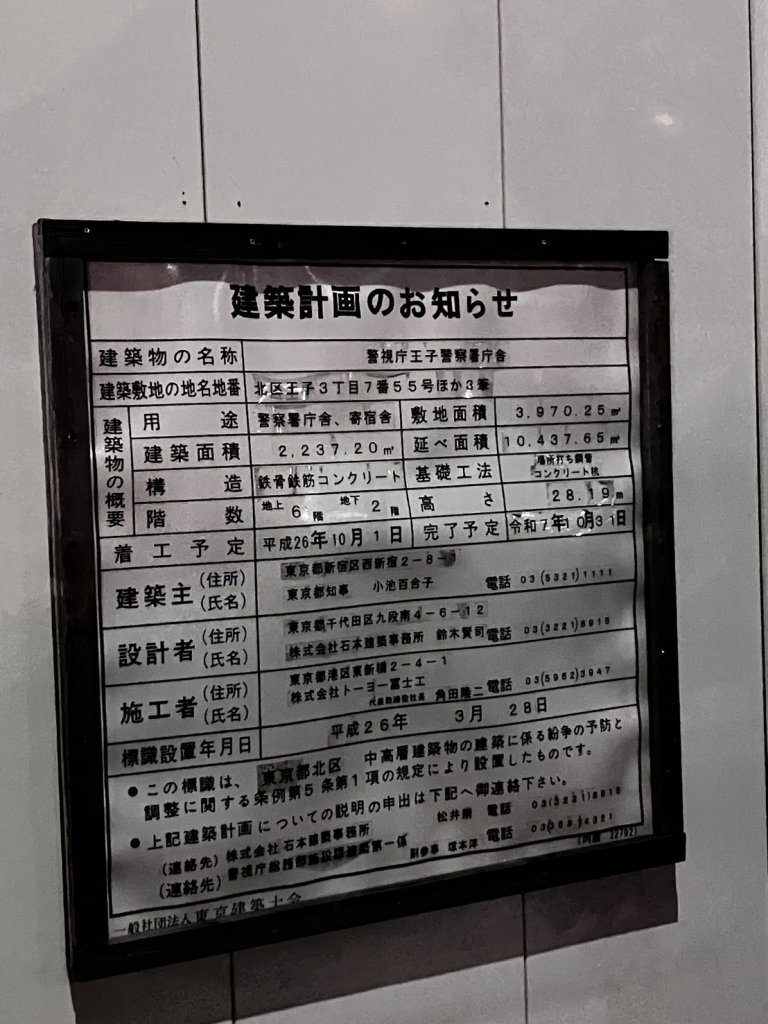 建築計画のお知らせ
建築物の名称 警視庁王子警察署庁舎
建築敷地の地名地番 北区王子3丁目7番55号ほか3筆
建築物の概要
用途 警察署庁舎、寄宿舎 敷地面積 3,970.25㎡
建築面積 2,237.20㎡ 延べ面積 10,437.65㎡
構造 鉄骨鉄筋コンクリート 基礎工法 場所打ち鋼管
コンクリート杭
階数 地上6階 地下2階 高さ 28.19m
着工予定 平成26年10月1日 完了予定 令和7年10月31日
建築主 (住所) 東京都新宿区西新宿2-8-1
(氏名) 東京都知事 小池百合子 電話 03(5321)1111
設計者 (住所) 東京都千代田区九段南4-6-12
(氏名) 株式会社石本建築事務所 鈴木賢司 電話 03(3221)8915
施工者 (住所) 東京都港区東新橋2-4-1
(氏名) 株式会社トーヨー冨士工 代表取締役社長 角田隆二 電話 03(5962)3947
標識設置年月日 平成26年 3月 28日
●この標識は、東京都北区 中高層建築物の建築に係る紛争の予防と
調整に関する条例第5条第1項の規定により設置したものです。
●上記建築計画についての説明の申出は下記へ御連絡下さい。
(連絡先) 株式会社石本建築事務所 松井 電話
(連絡先) 警視庁総務部施設課建築第一係 副参事 塚本洋 電話
一般社団法人東京建築士会